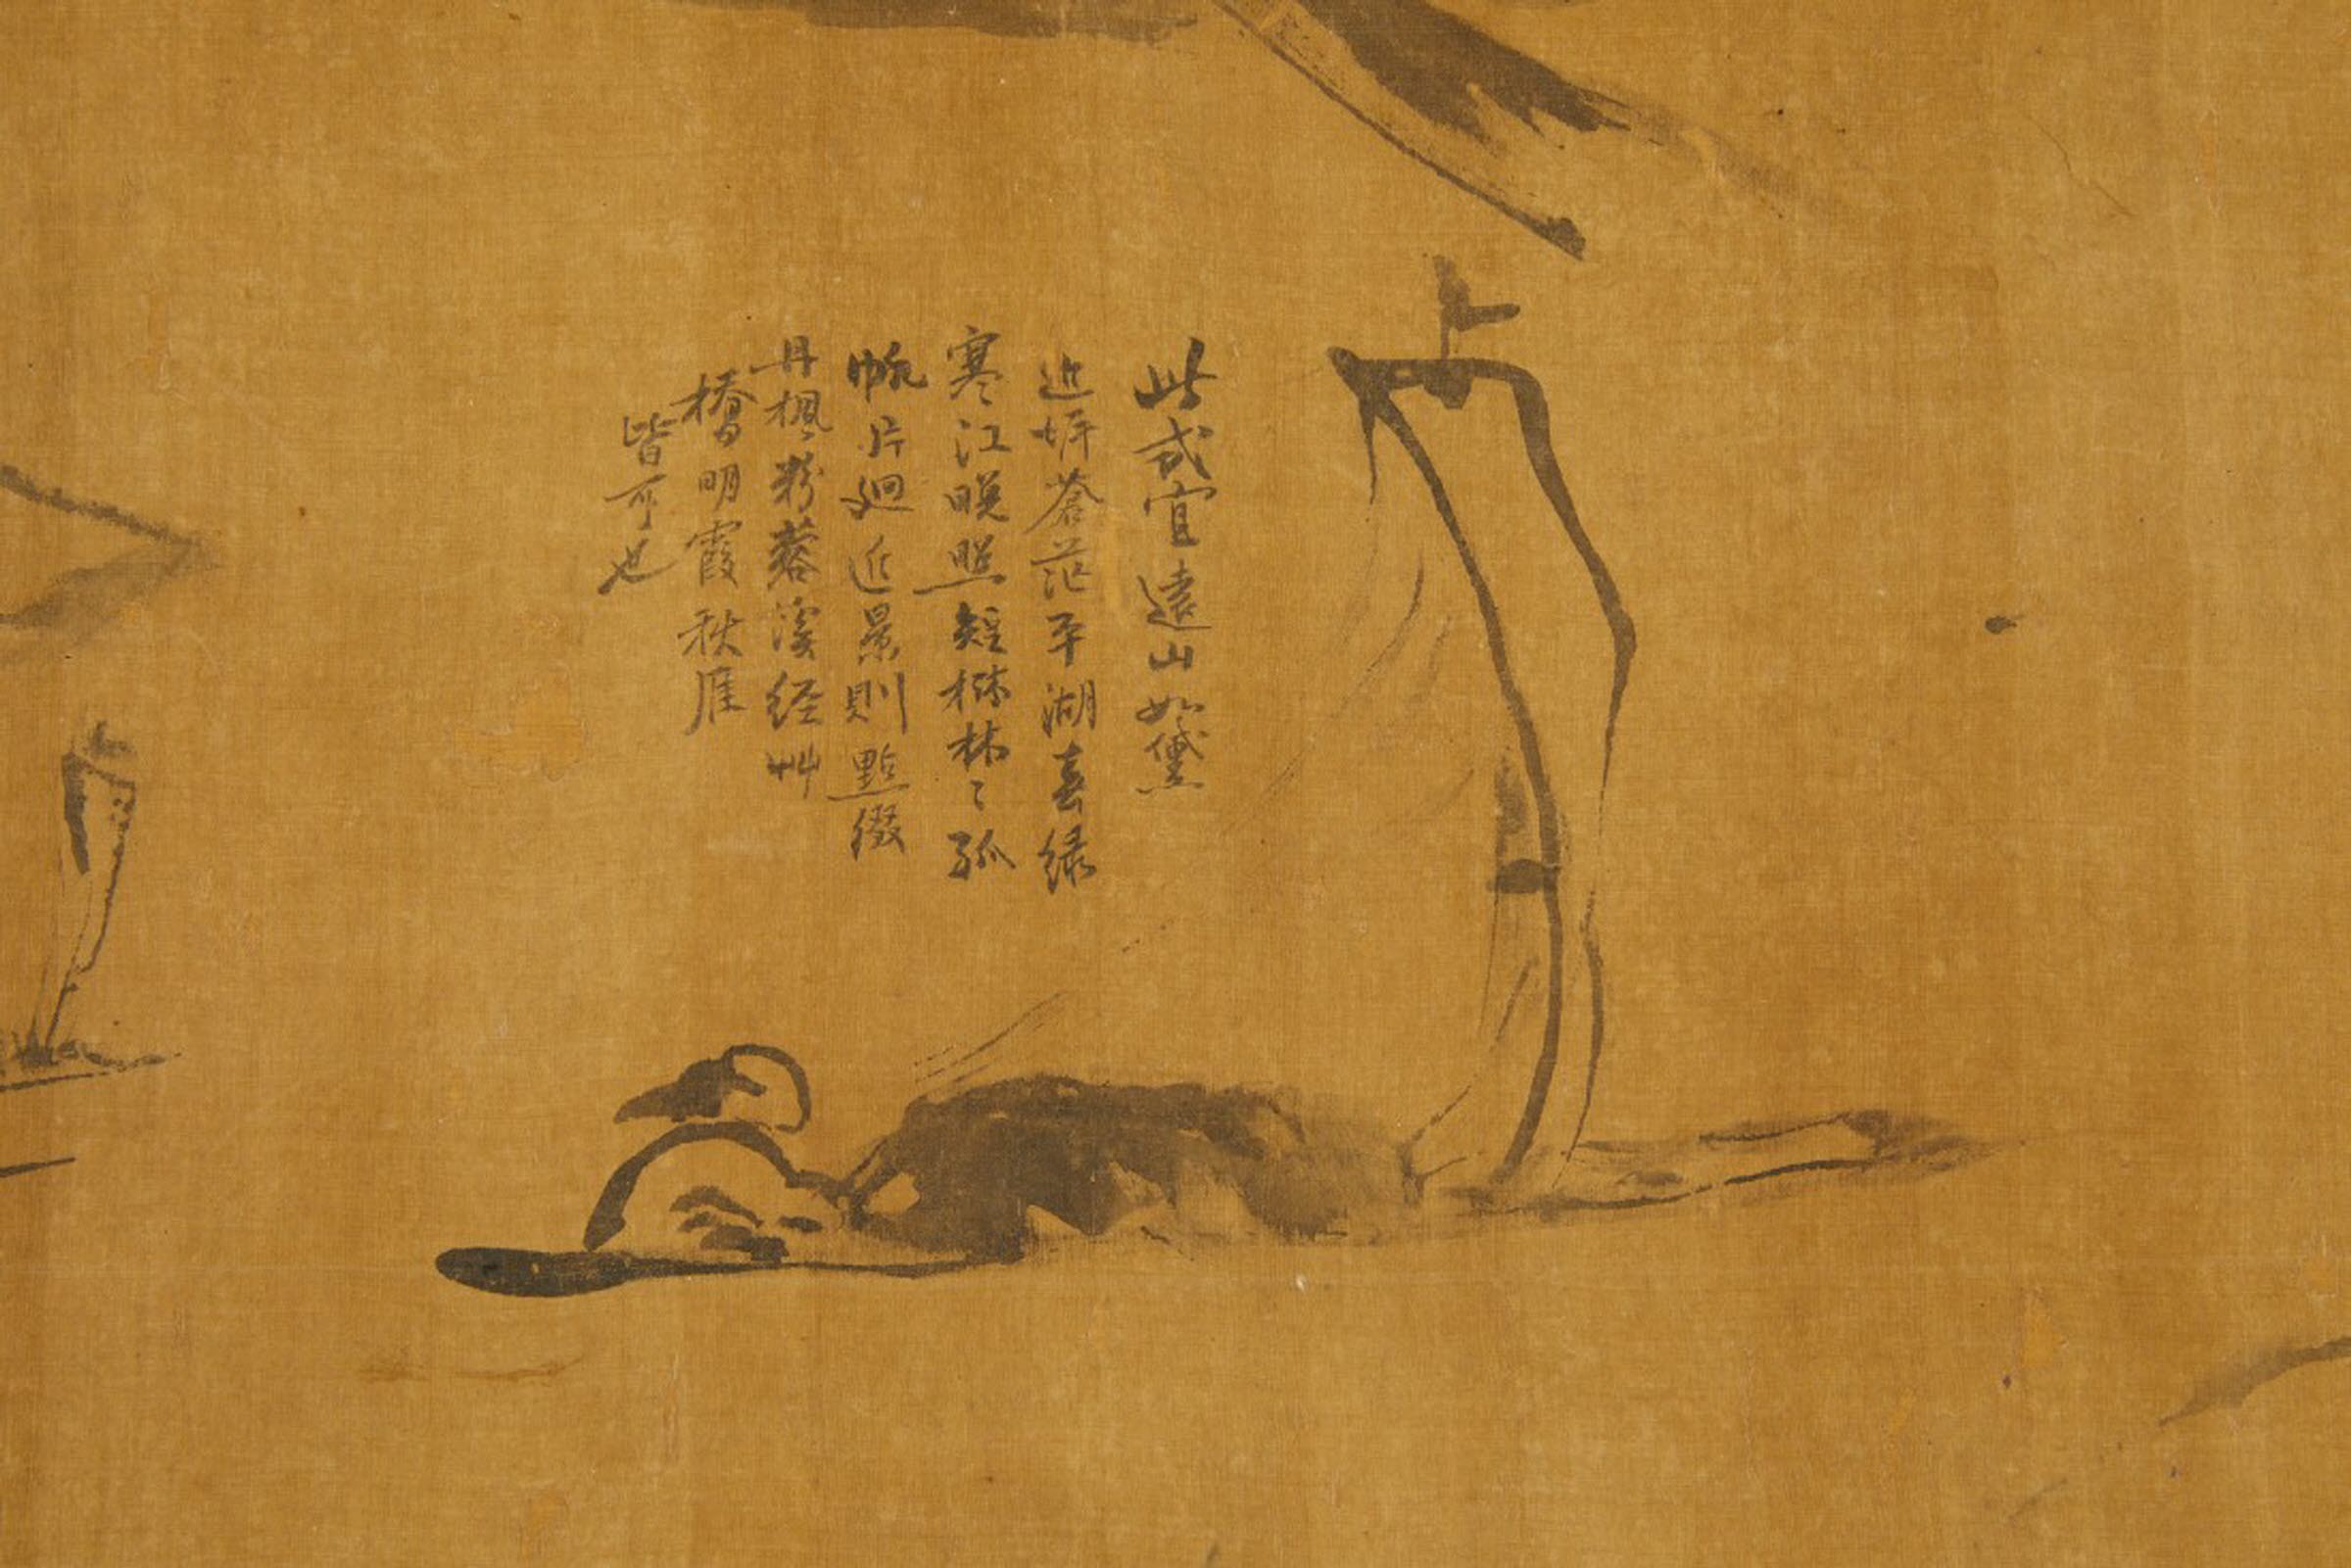 此式宜遠山如黛
近坪蒼茫平湖春緑
寒江晚照短槕林〻孤
帆片廻近景則點綴
丹楓粉蓉溪経艸
橋明霞秋雁
皆可也